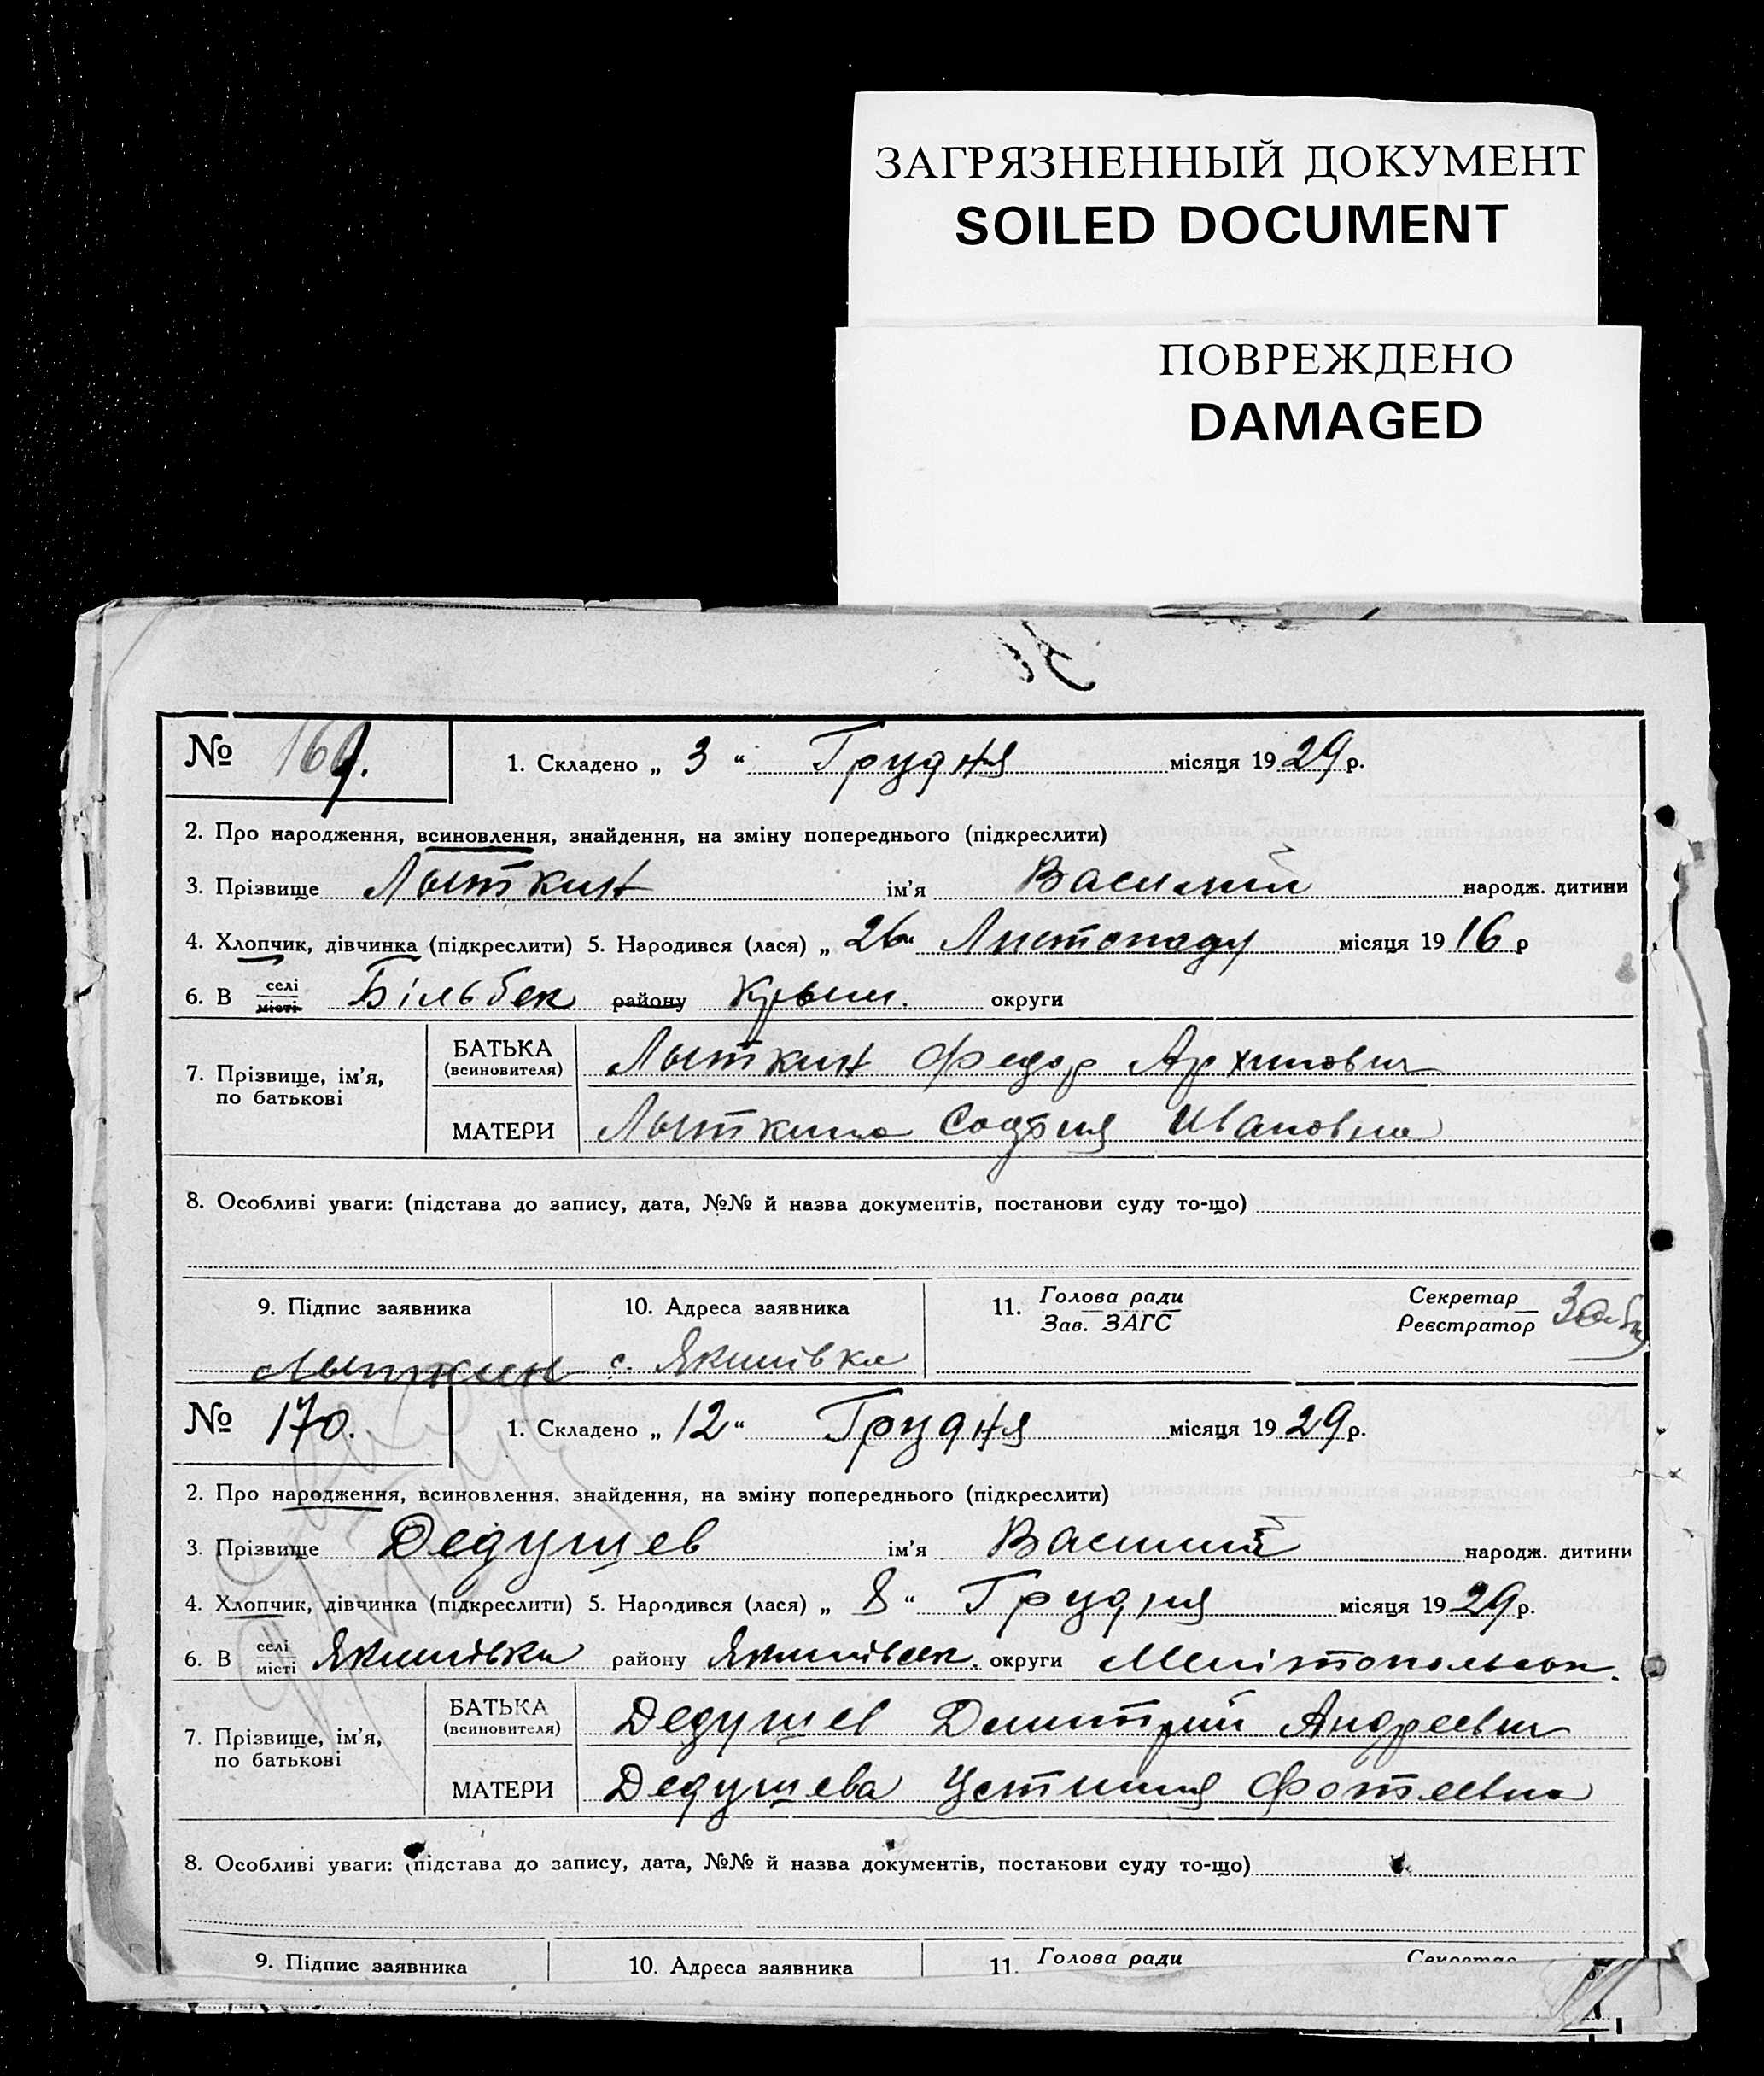 ЗАГРЯЗНЕННЫЙ ДОКУМЕНТ
SOILED DOCUMENT
ПОВРЕЖДЕНО
DAMAGED
№ 169. 1. Складено „ 3 “ Грудня місяця 1929 р.
2. Про народження, всиновлення, знайдення, на зміну попереднього (підкреслити)
3. Прізвище Лыткин ім’я Василий народж. дитини
4. Хлопчик, дівчинка (підкреслити) 5. Народився (лася) „ 26 “ Листопаду місяця 1916 р
6. В селі місті Більбек району Крым. округи
7. Прізвище, ім’я, по батькові
БАТЬКА (всиновителя) Лыткин Федор Архипович
МАТЕРИ Лыткина София Ивановна
8. Особливі уваги: (підстава до запису, дата, №№ й назва документів, постанови суду то-що)
9. Підпис заявника 10. Адреса заявника 11. Голова ради Зав. ЗАГС Секретар Реєстратор
Лыткин с. Якимівка
№ 170. 1. Складено „ 12 “ Грудня місяця 1929 р.
2. Про народження, всиновлення, знайдення, на зміну попереднього (підкреслити)
3. Прізвище Дедушев ім’я Василий народж. дитини
4. Хлопчик, дівчинка (підкреслити) 5. Народився (лася) „ 8 “ Грудня місяця 1929 р.
6. В селі місті Якимівка району Якимівськ. округи Мелітопольськ.
7. Прізвище, ім’я, по батькові
БАТЬКА (всиновителя) Дедушев Димитрий Андреевич
МАТЕРИ Дедушева Устиния Фотеевна
8. Особливі уваги: (підстава до запису, дата, №№ й назва документів, постанови суду то-що)
9. Підпис заявника 10. Адреса заявника 11. Голова ради Секретар